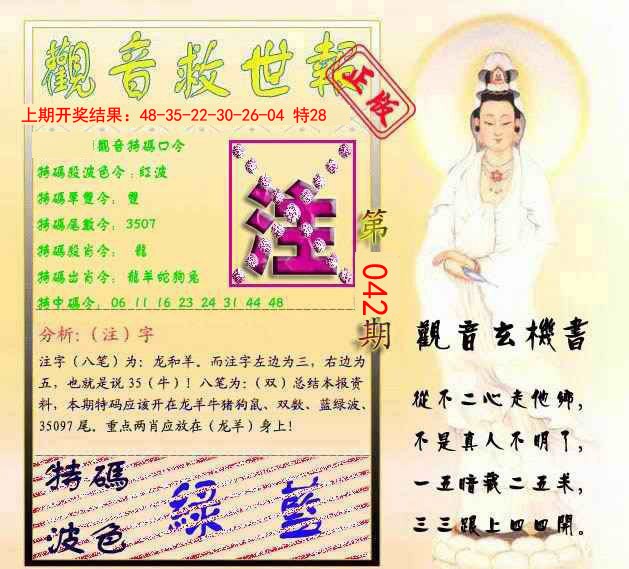 觀音救世報
正版
上期开奖结果：48-35-22-30-26-04 特28
觀音特碼口令
特碼段波色令：紅波
特碼單雙令： 雙
特碼尾數令： 3507
特碼段肖令： 龍
特碼出肖令： 龍羊蛇狗兔
特中碼令： 06 11 16 23 24 31 44 48
注
第
042
期
分析：（注）字
注字（八笔）为：龙和羊。而注字左边为三，右边为
五，也就是说 35（牛）！八笔为：（双）总结本报资
料，本期特码应该开在龙羊牛猪狗鼠、双数、蓝绿波、
35097 尾。重点两肖应放在（龙羊）身上！
特碼
波色
綠 藍
觀音玄機書
從不二心走他鄉，
不是真人不明了，
一五暗藏二五来，
三三跟上四四開。